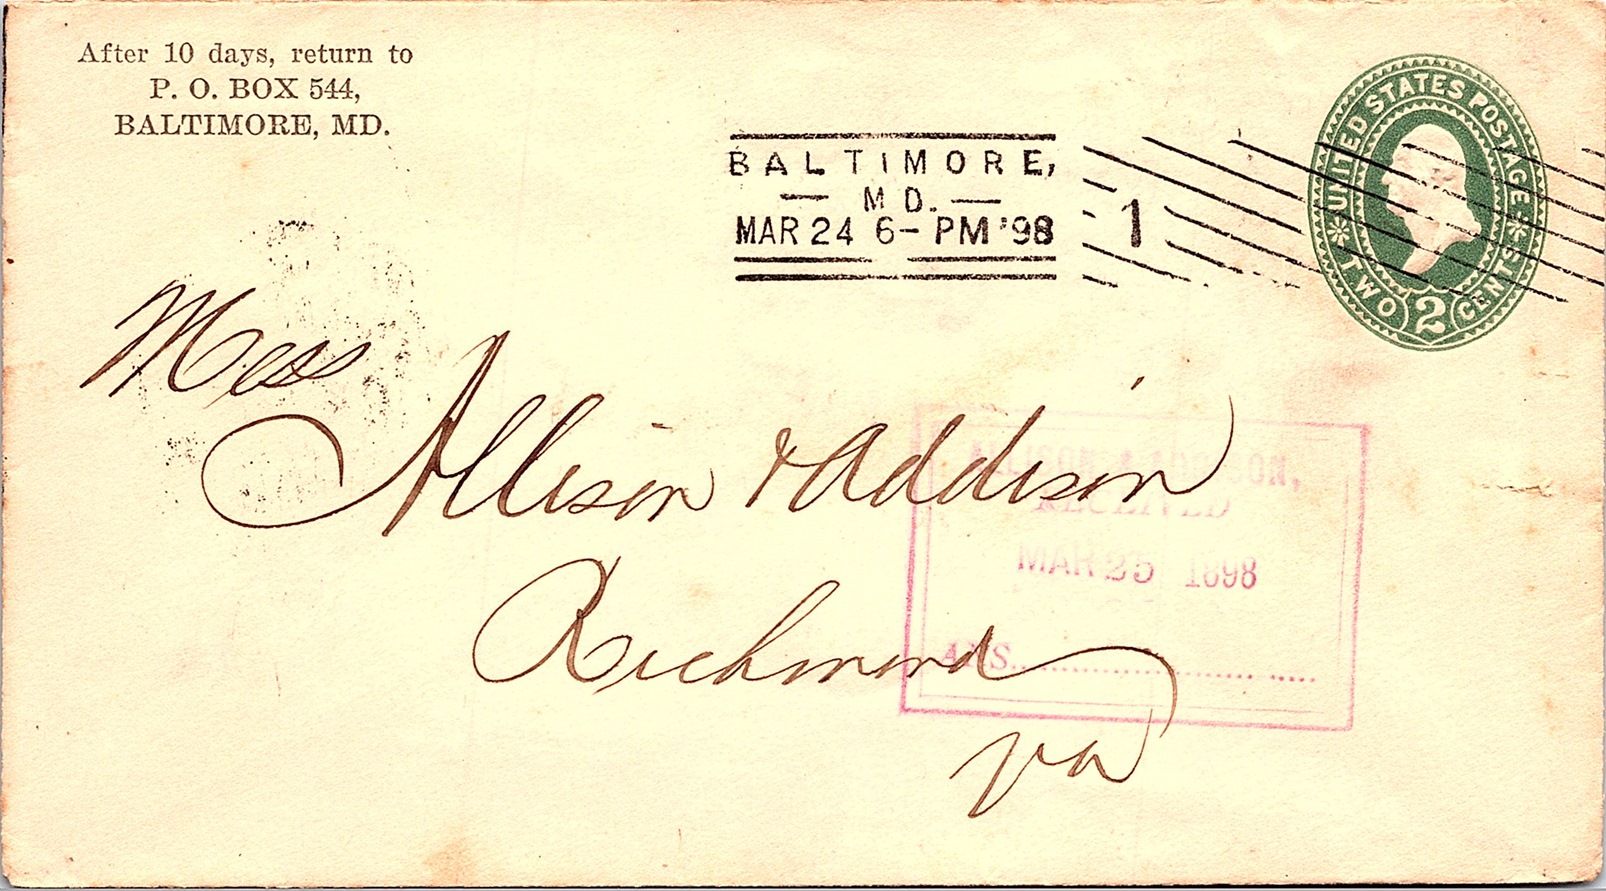 After 10 days, return to
P. O. BOX 544,
BALTIMORE, MD.
UNITED STATES POSTAGE
TWO 2 CENTS
BALTIMORE,
— MD. —
MAR 24 6- PM '98
1
Mess
Allison & Addison
Richmond
Va
ALLISON & ADDISON,
RECEIVED
MAR 25 1898
ANS.